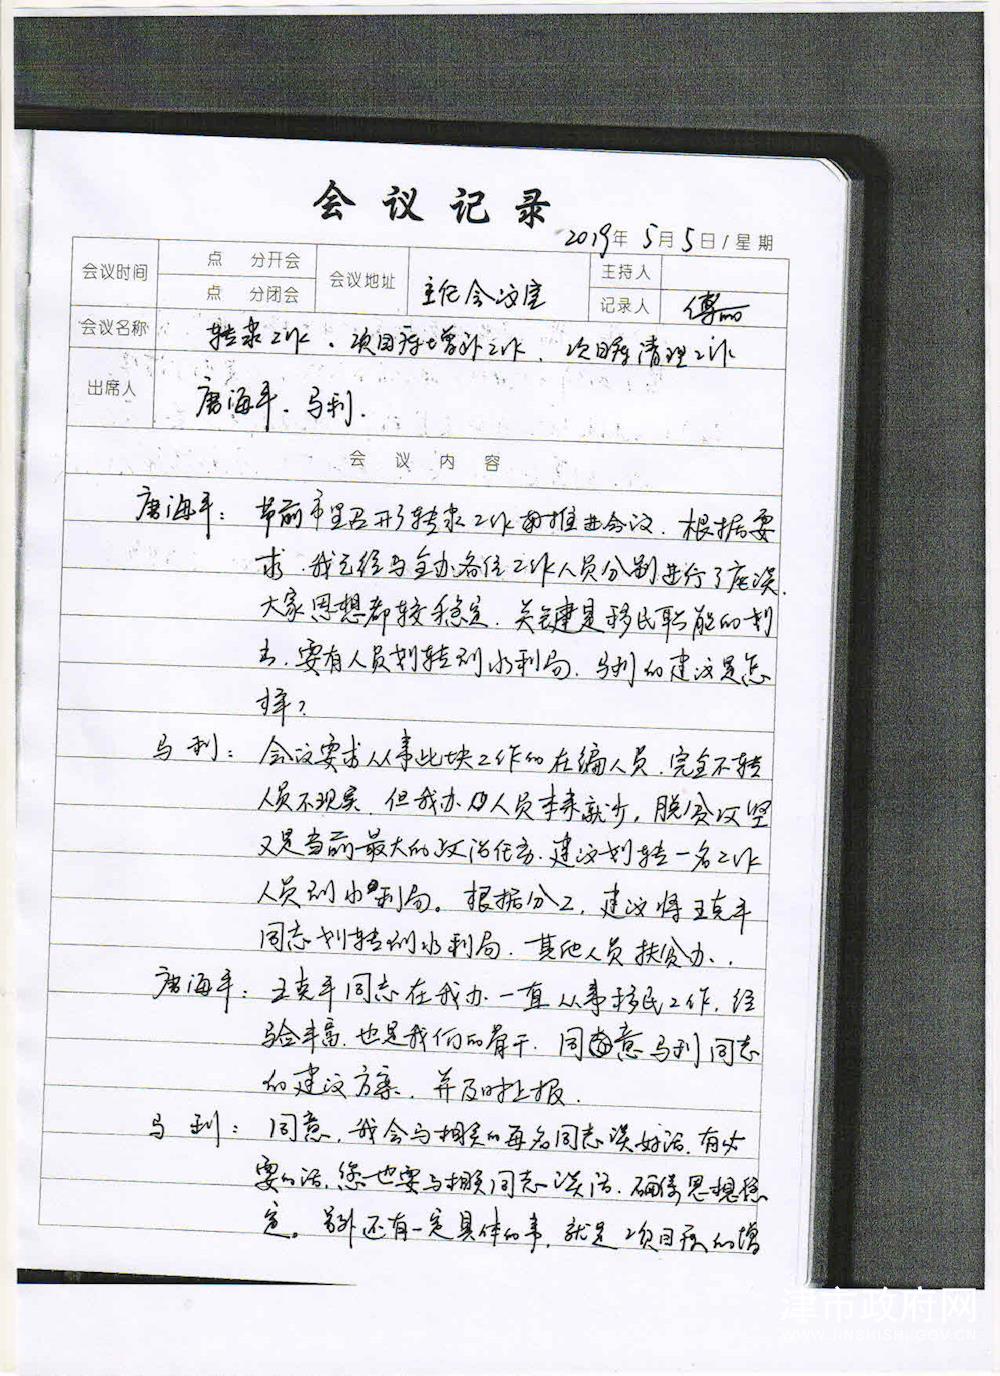 会议记录
2019年5月5日/星期
会议时间 点 分开会 会议地址 主任会议室 主持人
点 分闭会 记录人 傅
会议名称 转隶工作、项目库增补工作、项目库清理工作
出席人 唐海平、马利.
会议内容
唐海平：节前市里召开了转隶工作推进会议. 根据要
求,我已经与全办各位工作人员分别进行了座谈.
大家思想都较稳定. 关键是移民职能的划
去,要有人员划转到水利局. 马利的建议是怎
样?
马利：会议要求从事此块工作的在编人员,完全不转
人员不现实,但我办人员本来就少,脱贫攻坚
又是当前最大的政治任务.建议划转一名工作
人员到水利局。根据分工,建议将王克平
同志划转到水利局.其他人员扶贫办..
唐海平：王克平同志在我办一直从事移民工作,经
验丰富,也是我们的骨干.同意马利同志
的建议方案.并及时上报.
马利：同意,我会与相关的每名同志谈好话,有必
要的话,您也要与相关同志谈话.确保思想稳
定。另外还有一定具体的事,就是项目库的增
津市政府网
WWW.JINSHISHI.GOV.CN